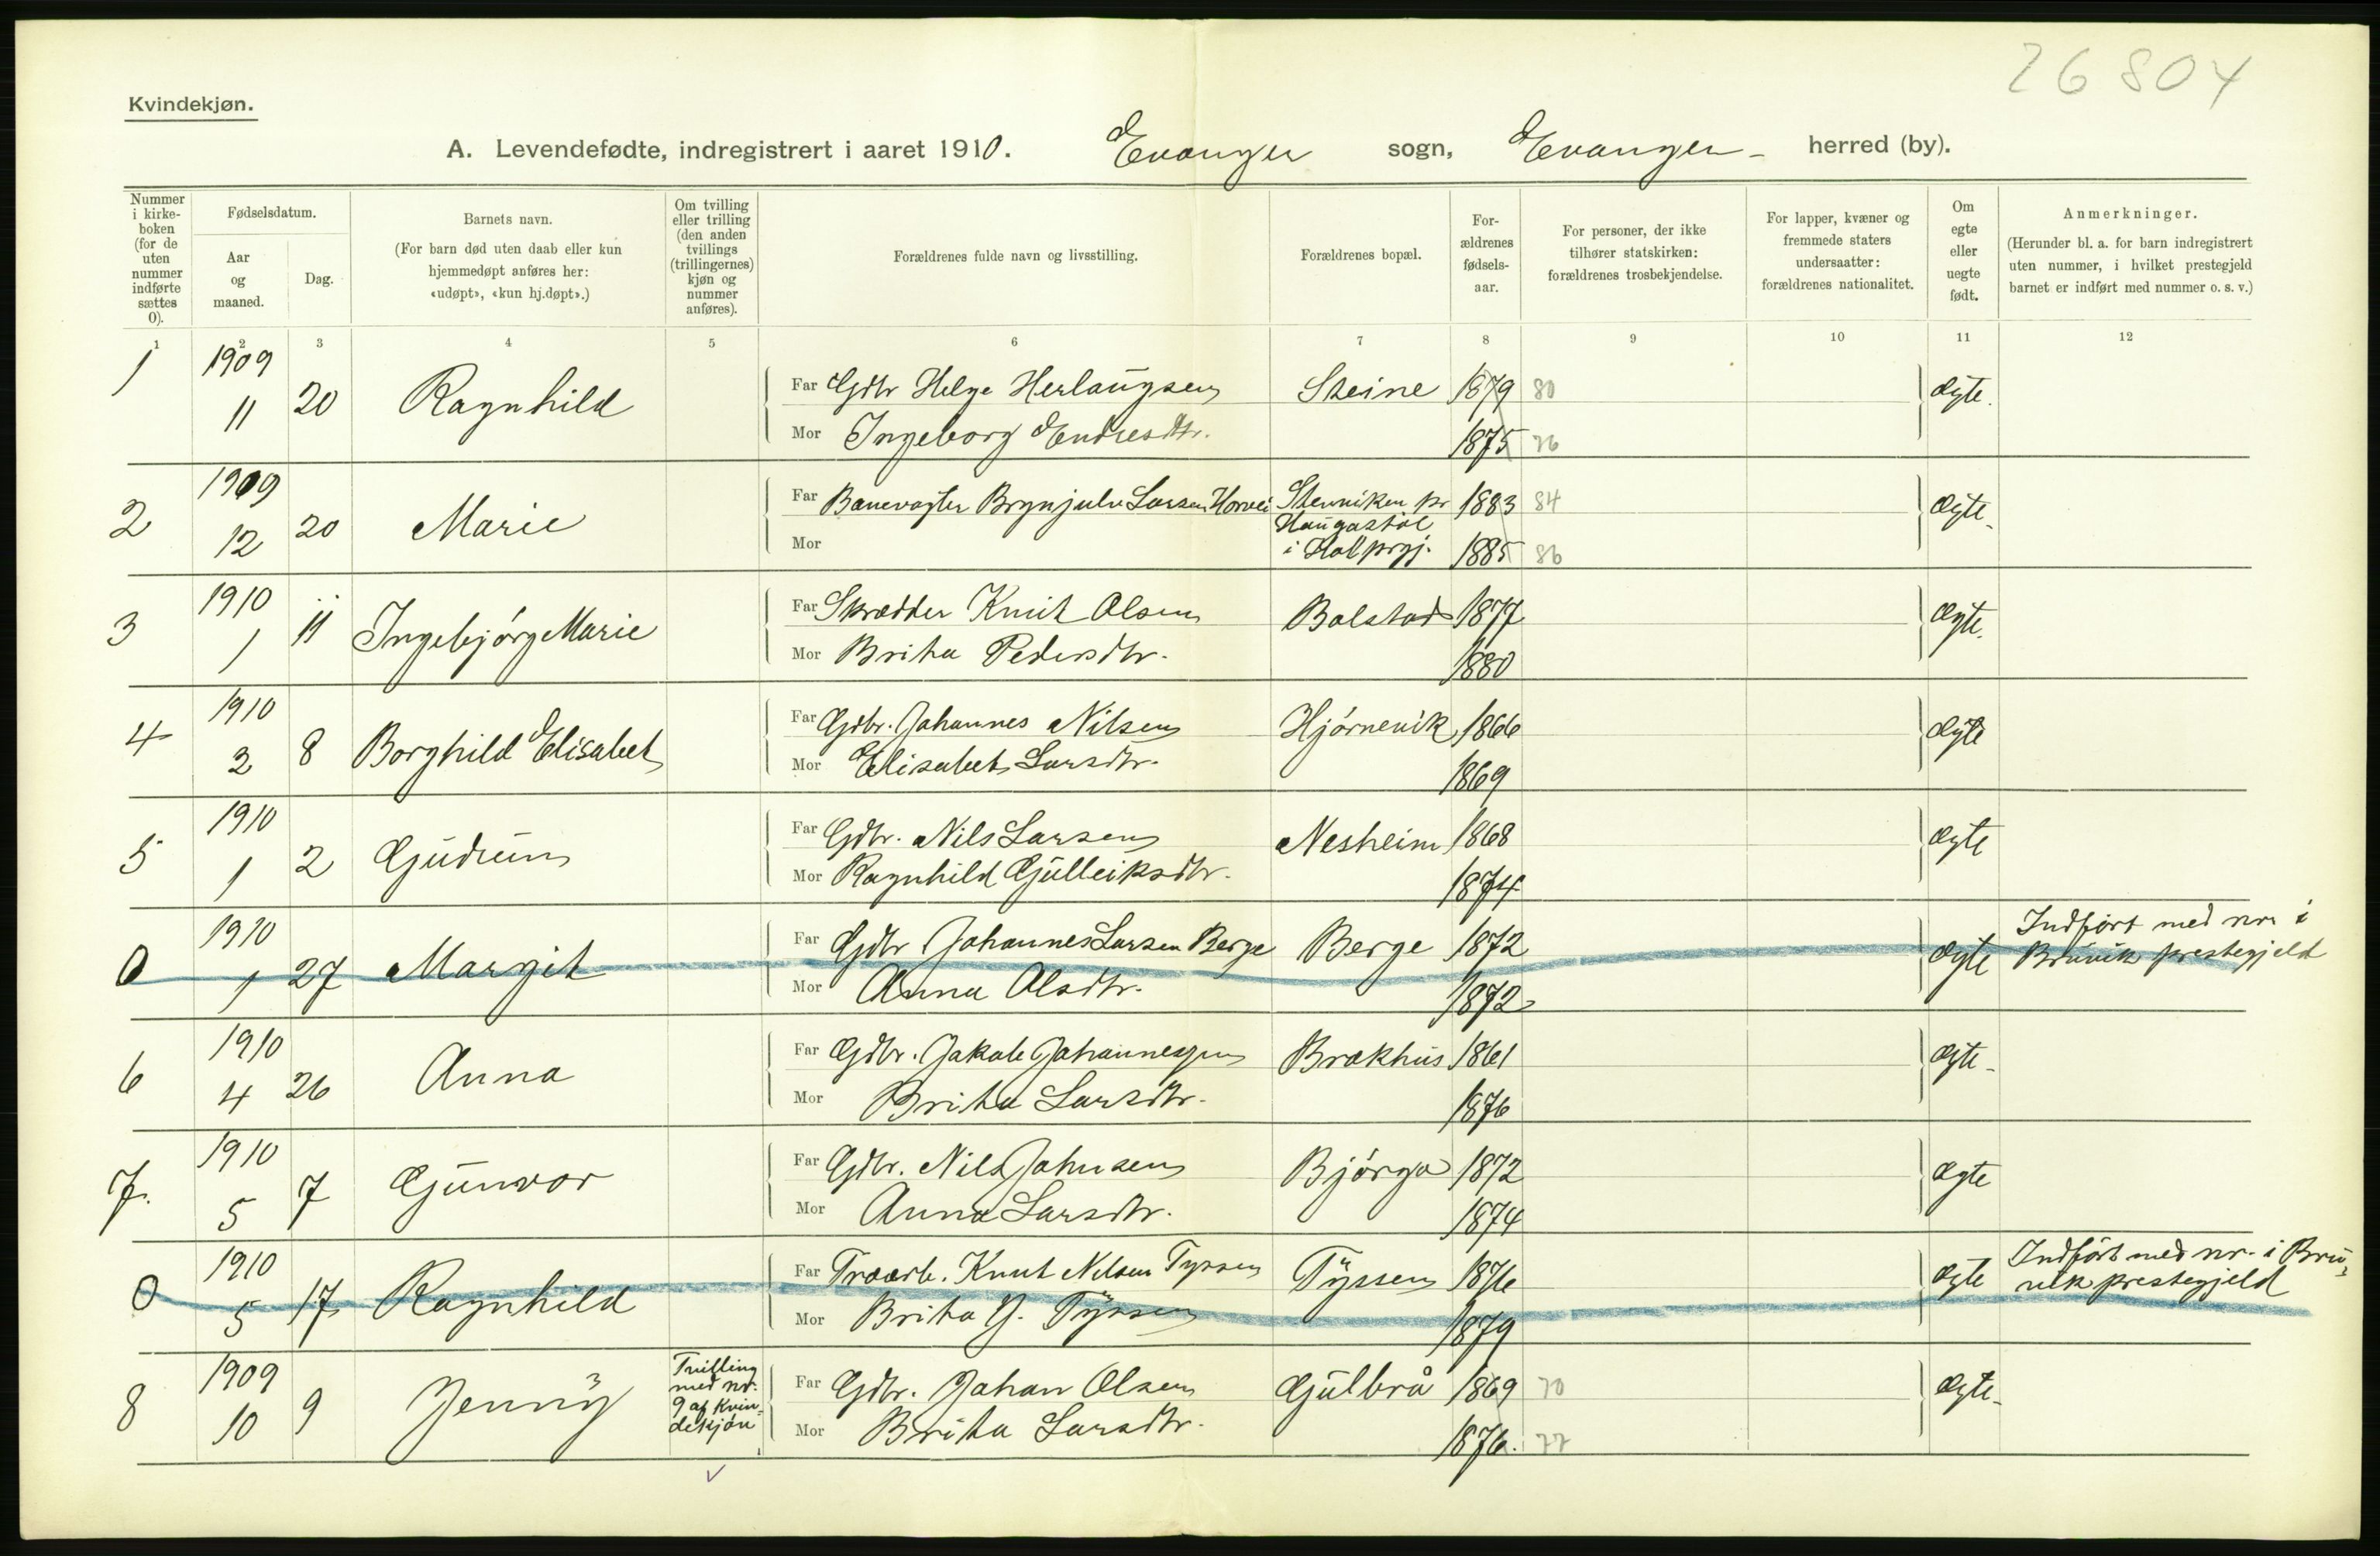 26804
Kvindekjøn.
A. Levendefødte, indregistrert i aaret 1910. Evanger sogn, Evanger herred (by).
Nummer i kirke-boken (for de uten nummer indførte sættes 0).
Fødselsdatum.
Aar og maaned.
Dag.
Barnets navn.
(For barn død uten daab eller kun hjemmedøpt anføres her: «udøpt», «kun hj.døpt».)
Om tvilling eller trilling (den anden tvillings (trillingernes) kjøn og nummer anføres).
Forældrenes fulde navn og livsstilling.
Forældrenes bopæl.
For-ældrenes fødsels-aar.
For personer, der ikke tilhører statskirken: forældrenes trosbekjendelse.
For lapper, kvæner og fremmede staters undersaatter: forældrenes nationalitet.
Om egte eller uegte født.
Anmerkninger.
(Herunder bl. a. for barn indregistrert uten nummer, i hvilket prestegjeld barnet er indført med nummer o. s. v.)
1 2 3 4 5 6 7 8 9 10 11 12
1 1909 11 20 Ragnhild Far Gdbr Helge Herlaugsen Steine 1879 80 ægte.
Mor Ingeborg Endresdtr. 1875 76
2 1909 12 20 Marie Far Banevogter Brynjulv Larsen Horvei 1883 84 ægte
Haugastøl
Mor i Hol prgj. 1885 86
3 1910 1 11 Ingebjörg Marie Far Skrædder Knut Olsen Bolstad 1877 ægte.
Mor Brita Pedersdtr. 1880
4 1910 3 8 Borghild Elisabet Far Gdbr. Johannes Nilsen Hjörnevik 1866 ægte
Mor Elisabet Larsdtr. 1869
5 1910 1 2 Gudrun Far Gdbr. Nils Larsen Nesheim 1868 ægte
Mor Ragnhild Gulleiksdtr. 1874
0 1910 1 27 Margit Far Gdbr Johannes Larsen Berge Berge 1872 ægte Indført med nr. i
Bruvik prestegjeld
Mor Anna Olsdtr. 1872
6 1910 4 26 Anna Far Gdbr. Jakob Johannessen Brakhus 1861 ægte
Mor Brita Larsdtr. 1876
7. 1910 5 7 Gunvor Far Gdbr. Nils Johnsen Björgo 1872 ægte
Mor Anna Larsdtr. 1874
0 1910 5 17 Ragnhild Far Træarb. Knut Nilsen Tyssen Tyssen 1876 ægte Indført med nr. i Bru-
vik prestegjeld
Mor Brita J. Tyssen 1879
8 1909 10 9 Jenny Tvilling
med nr.
9 af kvin-
dekjøn Far Gdbr. Johan Olsen Gulbrå 1869 70 ægte
Mor Brita Larsdtr. 1876. 77